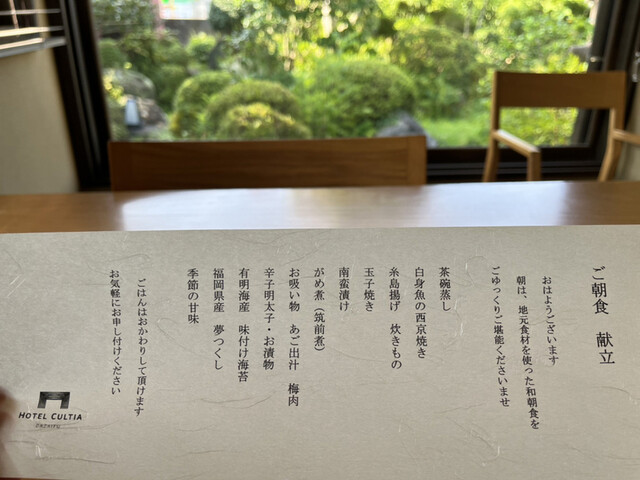 ご朝食 献立
おはようございます
朝は、地元食材を使った和朝食を
ごゆっくりご堪能くださいませ
茶碗蒸し
白身魚の西京焼き
糸島揚げ 炊きもの
玉子焼き
南蛮漬け
がめ煮(筑前煮)
お吸い物 あご出汁 梅肉
辛子明太子・お漬物
有明海産 味付け海苔
福岡県産 夢つくし
季節の甘味
ごはんはおかわりして頂けます
お気軽にお申し付けください
HOTEL CULTIA
DAZAIFU